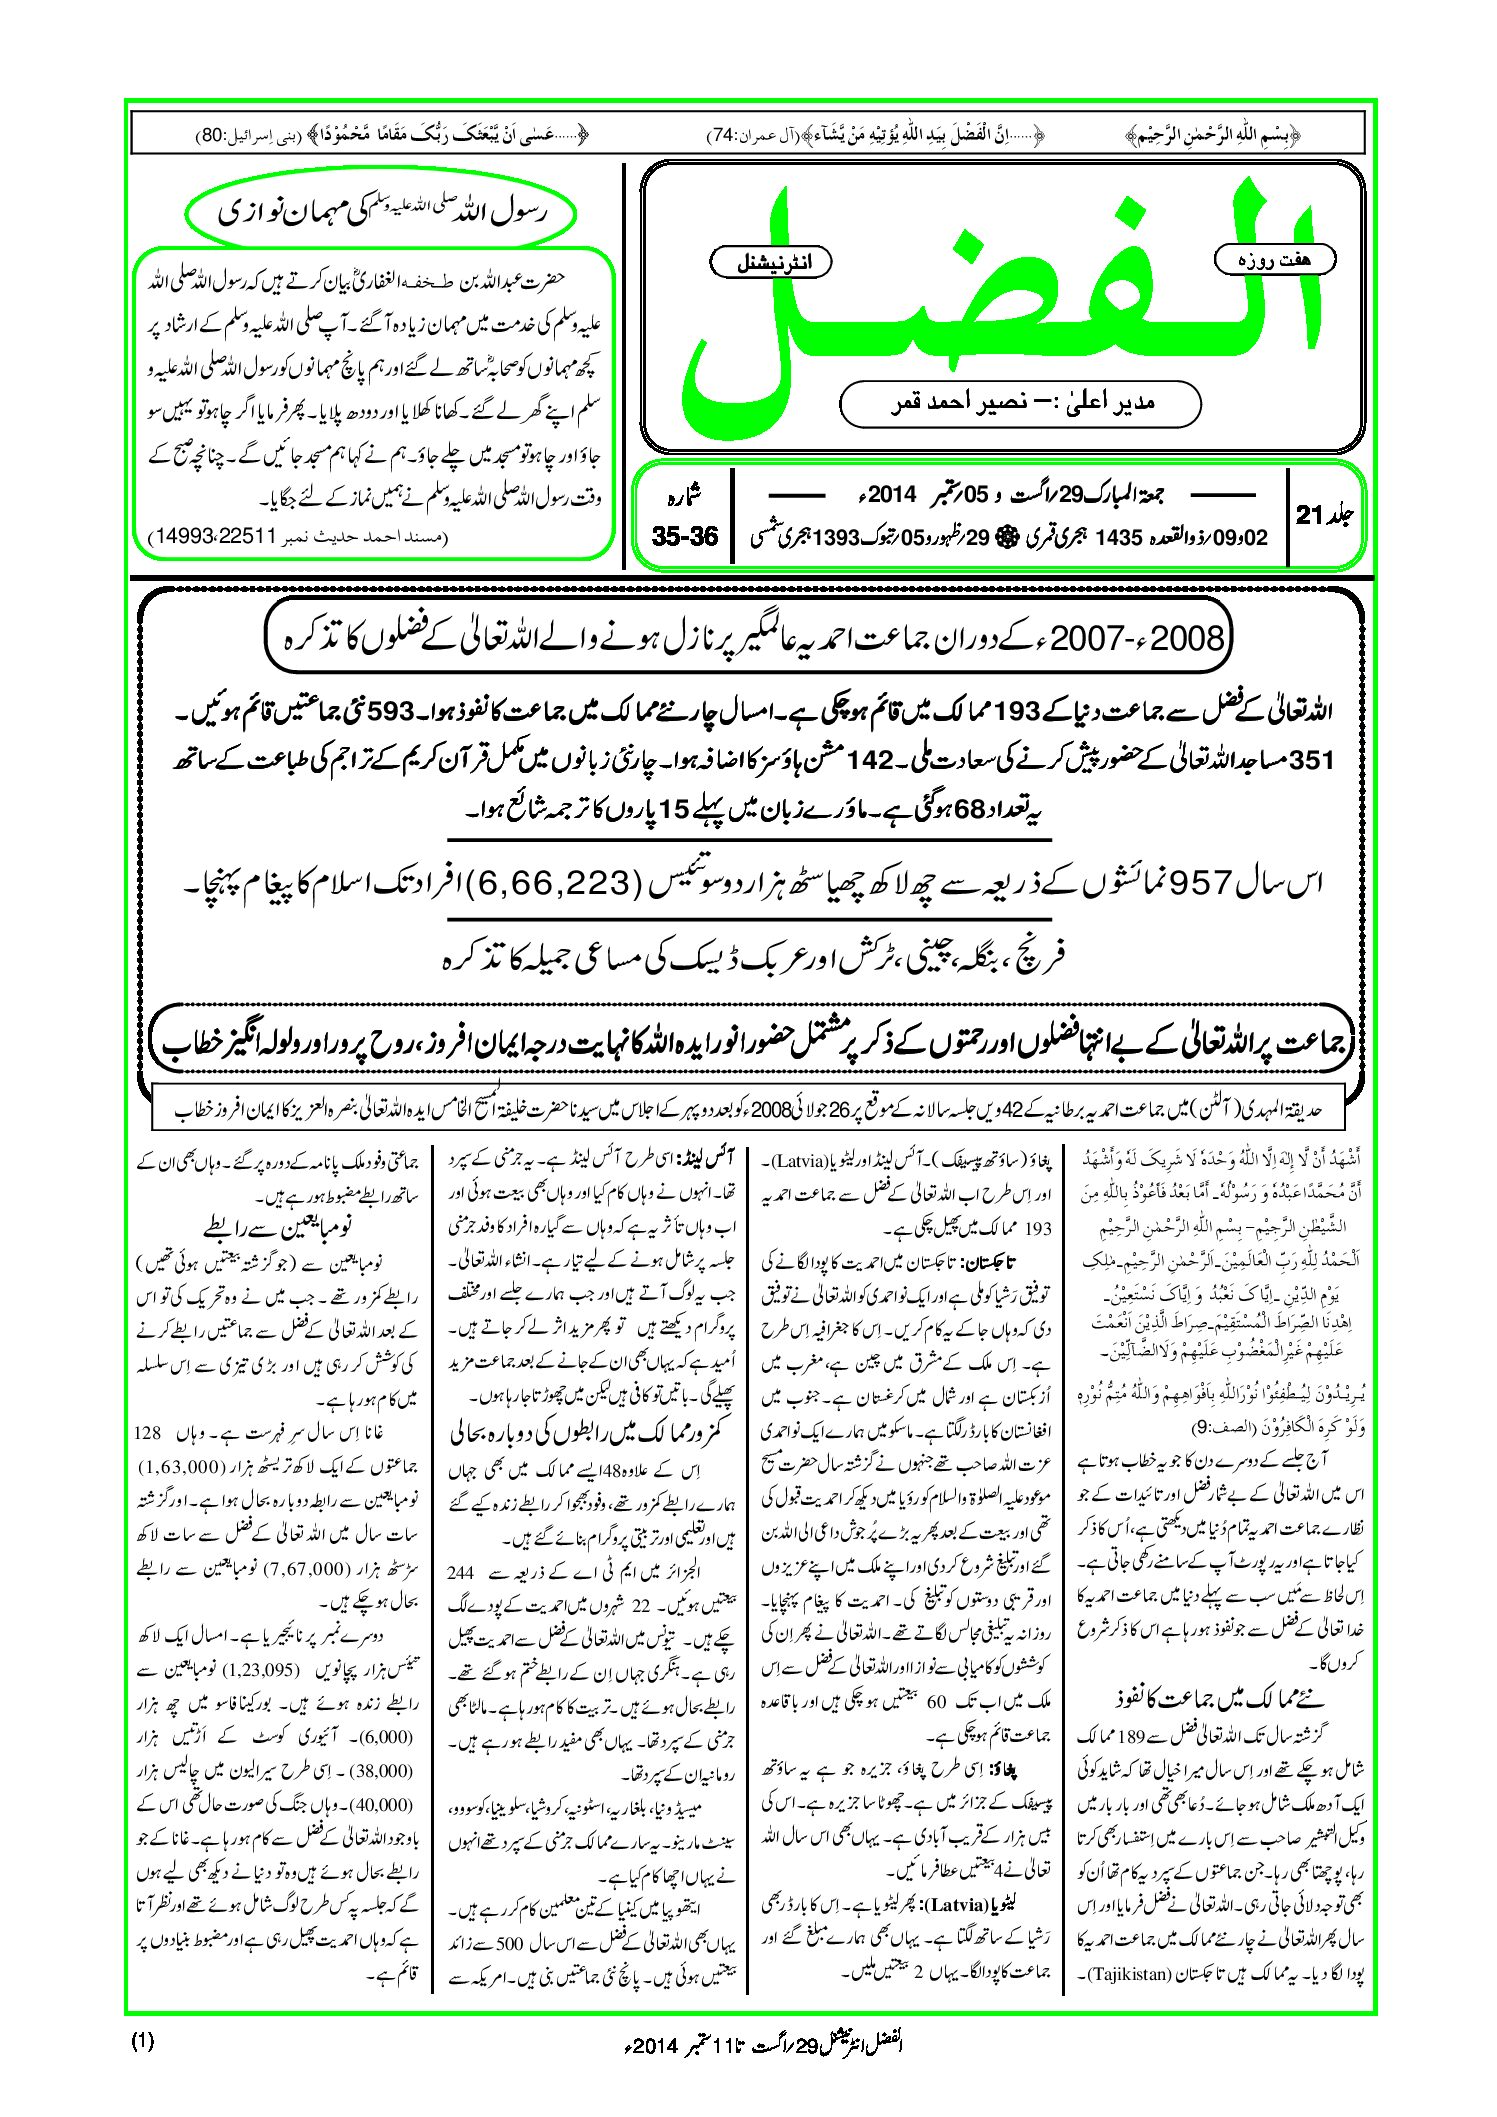 ﴿بِسْمِ اللّٰهِ الرَّحْمٰنِ الرَّحِیْمِ﴾
﴿......اِنَّ الْفَضْلَ بِیَدِ اللّٰهِ یُؤْتِیْهِ مَنْ یَّشَآء﴾(آل عمران:74)
﴿......عَسٰی اَنْ یَّبْعَثَکَ رَبُّکَ مَقَامًا مَّحْمُوْدًا﴾ (بنی اِسرائیل:80)
الفضل
هفت روزہ
انٹرنیشنل
مدیر اعلیٰ :– نصیر احمد قمر
جلد 21
جمعۃ المبارک 29/اگست و 05/ستمبر 2014ء
02و09/ذوالقعدہ 1435 ہجری قمری 29/ظہور و05/تبوک 1393 ہجری شمسی
شمارہ
35-36
رسول اللہ صلی اللہ علیہ وسلم کی مہمان نوازی
حضرت عبداللہ بن طخفہ الغفاریؓ بیان کرتے ہیں کہ رسول اللہ صلی اللہ
علیہ وسلم کی خدمت میں مہمان زیادہ آگئے۔ آپ صلی اللہ علیہ وسلم کے ارشاد پر
کچھ مہمانوں کو صحابہؓ ساتھ لے گئے اور ہم پانچ مہمانوں کو رسول اللہ صلی اللہ علیہ و
سلم اپنے گھر لے گئے۔ کھانا کھلایا اور دودھ پلایا۔ پھر فرمایا اگر چاہو تو یہیں سو
جاؤ اور چاہو تو مسجد میں چلے جاؤ۔ ہم نے کہا ہم مسجد جائیں گے۔ چنانچہ صبح کے
وقت رسول اللہ صلی اللہ علیہ وسلم نے ہمیں نماز کے لئے جگایا۔
(مسند احمد حدیث نمبر 14993،22511)
2007-2008ء کے دوران جماعت احمدیہ عالمگیر پر نازل ہونے والے اللہ تعالیٰ کے فضلوں کا تذکرہ
اللہ تعالیٰ کے فضل سے جماعت دنیا کے 193 ممالک میں قائم ہوچکی ہے۔ امسال چار نئے ممالک میں جماعت کا نفوذ ہوا۔ 593 نئی جماعتیں قائم ہوئیں۔
351 مساجد اللہ تعالیٰ کے حضور پیش کرنے کی سعادت ملی۔ 142 مشن ہاؤسز کا اضافہ ہوا۔ چار نئی زبانوں میں مکمل قرآن کریم کے تراجم کی طباعت کے ساتھ
یہ تعداد 68 ہوگئی ہے۔ ماؤرے زبان میں پہلے 15 پاروں کا ترجمہ شائع ہوا۔
اس سال 957 نمائشوں کے ذریعہ سے چھ لاکھ چھیاسٹھ ہزار دو سو تئیس (6,66,223) افراد تک اسلام کا پیغام پہنچا۔
فرنچ، بنگلہ، چینی، ٹرکش اور عربک ڈیسک کی مساعی جمیلہ کا تذکرہ
جماعت پر اللہ تعالیٰ کے بے انتہا فضلوں اور رحمتوں کے ذکر پر مشتمل حضور انور ایدہ اللہ کا نہایت درجہ ایمان افروز، روح پرور اور ولولہ انگیز خطاب
حدیقۃ المہدی (آلٹن) میں جماعت احمدیہ برطانیہ کے 42 ویں جلسہ سالانہ کے موقع پر 26 جولائی 2008ء کو بعد دوپہر کے اجلاس میں سیدنا حضرت خلیفۃ المسیح الخامس ایدہ اللہ تعالیٰ بنصرہ العزیز کا ایمان افروز خطاب
أَشْهَدُ أَنْ لَّا إِلٰهَ إِلَّا اللّٰهُ وَحْدَهٗ لَا شَرِیکَ لَهٗ وَأَشْهَدُ
أَنَّ مُحَمَّدًا عَبْدُهٗ وَ رَسُوْلُهٗ۔ أَمَّا بَعْدُ فَأَعُوْذُ بِاللّٰهِ مِنَ
الشَّیْطٰنِ الرَّجِیْمِ– بِسْمِ اللّٰهِ الرَّحْمٰنِ الرَّحِیْمِ
اَلْحَمْدُ لِلّٰهِ رَبِّ الْعَالَمِیْنَ۔اَلرَّحْمٰنِ الرَّحِیْمِ۔مٰلِکِ
یَوْمِ الدِّیْنِ ۔إِیَّاکَ نَعْبُدُ وَ إِیَّاکَ نَسْتَعِیْنُ۔
اِهْدِنَا الصِّرَاطَ الْمُسْتَقِیْمَ۔صِرَاطَ الَّذِیْنَ اَنْعَمْتَ
عَلَیْهِمْ غَیْرِالْمَغْضُوْبِ عَلَیْهِمْ وَلَاالضَّآلِّیْنَ۔
یُرِیْدُوْنَ لِیُطْفِئُوْا نُوْرَاللّٰهِ بِاَفْوَاهِهِمْ وَاللّٰهُ مُتِمُّ نُوْرِهٖ
وَلَوْ کَرِهَ الْکَافِرُوْنَ (الصف:9)
آج جلسے کے دوسرے دن کا جو یہ خطاب ہوتا ہے
اس میں اللہ تعالیٰ کے بے شمار فضل اور تائیدات کے جو
نظارے جماعت احمدیہ تمام دُنیا میں دیکھتی ہے، اُس کا ذکر
کیا جاتا ہے اور یہ رپورٹ آپ کے سامنے رکھی جاتی ہے۔
اِس لحاظ سے مَیں سب سے پہلے دنیا میں جماعت احمدیہ کا
خدا تعالیٰ کے فضل سے جو نفوذ ہو رہا ہے اس کا ذکر شروع
کروں گا۔
نئے ممالک میں جماعت کا نفوذ
گزشتہ سال تک اللہ تعالیٰ فضل سے 189 ممالک
شامل ہو چکے تھے اور اِس سال میرا خیال تھا کہ شاید کوئی
ایک آدھ ملک شامل ہو جائے۔ دُعا بھی تھی اور بار بار میں
وکیل التبشیر صاحب سے اِس بارے میں اِستفسار بھی کرتا
رہا، پوچھتا بھی رہا۔ جن جماعتوں کے سپرد یہ کام تھا اُن کو
بھی توجہ دلائی جاتی رہی۔ اللہ تعالیٰ نے فضل فرمایا اور اِس
سال پھر اللہ تعالیٰ نے چار نئے ممالک میں جماعت احمدیہ کا
پودا لگا دیا۔ یہ ممالک ہیں تاجکستان (Tajikistan)۔
پغاؤ (ساؤتھ پیسیفک)۔ آئس لینڈ اور لیٹویا (Latvia)۔
اور اِس طرح اب اللہ تعالیٰ کے فضل سے جماعت احمدیہ
193 ممالک میں پھیل چکی ہے۔
تاجکستان: تاجکستان میں احمدیت کا پودا لگانے کی
توفیق رَشیا کو ملی ہے اور ایک نو احمدی کو اللہ تعالیٰ نے توفیق
دی کہ وہاں جا کے یہ کام کریں۔ اِس کا جغرافیہ اِس طرح
ہے۔ اِس ملک کے مشرق میں چین ہے، مغرب میں
اُزبکستان ہے اور شمال میں کرغستان ہے۔ جنوب میں
افغانستان کا بارڈر لگتا ہے۔ ماسکو میں ہمارے ایک نو احمدی
عزت اللہ صاحب تھے جنہوں نے گزشتہ سال حضرت مسیح
موعود علیہ الصلوٰۃ والسلام کو رؤیا میں دیکھ کر احمدیت قبول کی
تھی اور بیعت کے بعد پھر یہ بڑے پُر جوش داعی الی اللہ بن
گئے اور تبلیغ شروع کر دی اور اپنے ملک میں اپنے عزیزوں
اور قریبی دوستوں کو تبلیغ کی۔ احمدیت کا پیغام پہنچایا۔
روزانہ یہ تبلیغی مجالس لگاتے تھے۔ اللہ تعالیٰ نے پھر اِن کی
کوششوں کو کامیابی سے نوازا اور اللہ تعالیٰ کے فضل سے اِس
ملک میں اب تک 60 بیعتیں ہو چکی ہیں اور باقاعدہ
جماعت قائم ہوچکی ہے۔
پغاؤ: اِسی طرح پغاؤ، جزیرہ جو ہے یہ ساؤتھ
پیسیفک کے جزائر میں ہے۔ چھوٹا سا جزیرہ ہے۔ اس کی
بیس ہزار کے قریب آبادی ہے۔ یہاں بھی اس سال اللہ
تعالیٰ نے 4 بیعتیں عطا فرمائیں۔
لیٹویا (Latvia): پھر لیٹویا ہے۔ اِس کا بارڈر بھی
رَشیا کے ساتھ لگتا ہے۔ یہاں بھی ہمارے مبلغ گئے اور
جماعت کا پودا لگا۔ یہاں 2 بیعتیں ملیں۔
آئس لینڈ: اسی طرح آئس لینڈ ہے۔ یہ جرمنی کے سپرد
تھا۔ انہوں نے وہاں کام کیا اور وہاں بھی بیعت ہوئی اور
اب وہاں تأثر یہ ہے کہ وہاں سے گیارہ افراد کا وفد جرمنی
جلسہ پر شامل ہونے کے لیے تیار ہے۔ انشاء اللہ تعالیٰ۔
جب یہ لوگ آتے ہیں اور جب ہمارے جلسے اور مختلف
پروگرام دیکھتے ہیں تو پھر مزید اثر لے کر جاتے ہیں۔
اُمید ہے کہ یہاں بھی ان کے جانے کے بعد جماعت مزید
پھیلے گی۔ باتیں تو کافی ہیں لیکن میں چھوڑتا جا رہا ہوں۔
کمزور ممالک میں رابطوں کی دوبارہ بحالی
اِس کے علاوہ 48 ایسے ممالک میں بھی جہاں
ہمارے رابطے کمزور تھے، وفود بھجوا کر رابطے زندہ کیے گئے
ہیں اور تعلیمی اور تربیتی پروگرام بنائے گئے ہیں۔
الجزائر میں ایم ٹی اے کے ذریعہ سے 244
بیعتیں ہوئیں۔ 22 شہروں میں احمدیت کے پودے لگ
چکے ہیں۔ تیونس میں اللہ تعالیٰ کے فضل سے احمدیت پھیل
رہی ہے۔ ہنگری جہاں اِن کے رابطے ختم ہو گئے تھے۔
رابطے بحال ہوئے ہیں۔ تربیت کا کام ہو رہا ہے۔ مالٹا بھی
جرمنی کے سپرد تھا۔ یہاں بھی مفید رابطے ہو رہے ہیں۔
رومانیہ ان کے سپرد تھا۔
میسیڈونیا، بلغاریہ، اسٹونیہ، کروشیا، سلوینیا، کوسووو،
سینٹ مارینو۔ یہ سارے ممالک جرمنی کے سپرد تھے انہوں
نے یہاں اچھا کام کیا ہے۔
ایتھوپیا میں کینیا کے تین معلمین کام کر رہے ہیں۔
یہاں بھی اللہ تعالیٰ کے فضل سے اس سال 500 سے زائد
بیعتیں ہوئی ہیں۔ پانچ نئی جماعتیں بنی ہیں۔ امریکہ سے
جماعتی وفود ملک پانامہ کے دورہ پر گئے۔ وہاں بھی ان کے
ساتھ رابطے مضبوط ہو رہے ہیں۔
نومبایعین سے رابطے
نومبایعین سے (جو گزشتہ بیعتیں ہوئی تھیں)
رابطے کمزور تھے۔ جب میں نے وہ تحریک کی تو اس
کے بعد اللہ تعالیٰ کے فضل سے جماعتیں رابطے کرنے
کی کوشش کر رہی ہیں اور بڑی تیزی سے اِس سلسلہ
میں کام ہو رہا ہے۔
غانا اِس سال سرِ فہرست ہے۔ وہاں 128
جماعتوں کے ایک لاکھ تریسٹھ ہزار (1,63,000)
نومبایعین سے رابطہ دوبارہ بحال ہوا ہے۔ اور گزشتہ
سات سال میں اللہ تعالیٰ کے فضل سے سات لاکھ
سڑسٹھ ہزار (7,67,000) نومبایعین سے رابطے
بحال ہو چکے ہیں۔
دوسرے نمبر پر نائیجیریا ہے۔ امسال ایک لاکھ
تیئس ہزار پچانویں (1,23,095) نومبایعین سے
رابطے زندہ ہوئے ہیں۔ بورکینا فاسو میں چھ ہزار
(6,000)۔ آئیوری کوسٹ کے اڑتیس ہزار
(38,000) ۔ اِسی طرح سیرالیون میں چالیس ہزار
(40,000)۔ وہاں جنگ کی صورت حال تھی اس کے
باوجود اللہ تعالیٰ کے فضل سے کام ہو رہا ہے۔ غانا کے جو
رابطے بحال ہوئے ہیں وہ تو دنیا نے دیکھ بھی لیے ہوں
گے کہ جلسہ پہ کس طرح لوگ شامل ہوئے تھے اور نظر آتا
ہے کہ وہاں احمدیت پھیل رہی ہے اور مضبوط بنیادوں پر
قائم ہے۔
الفضل انٹرنیشنل 29/اگست تا 11 ستمبر 2014ء
(1)